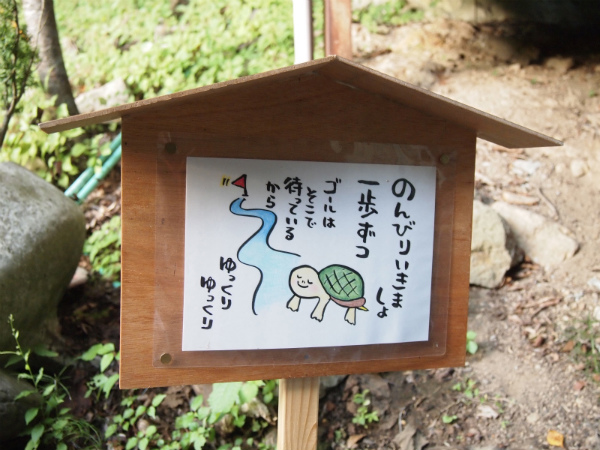 のんびりいきま
しょ
一歩ずつ
ゴールは
そこで
待っている
から
ゆっくり
ゆっくり